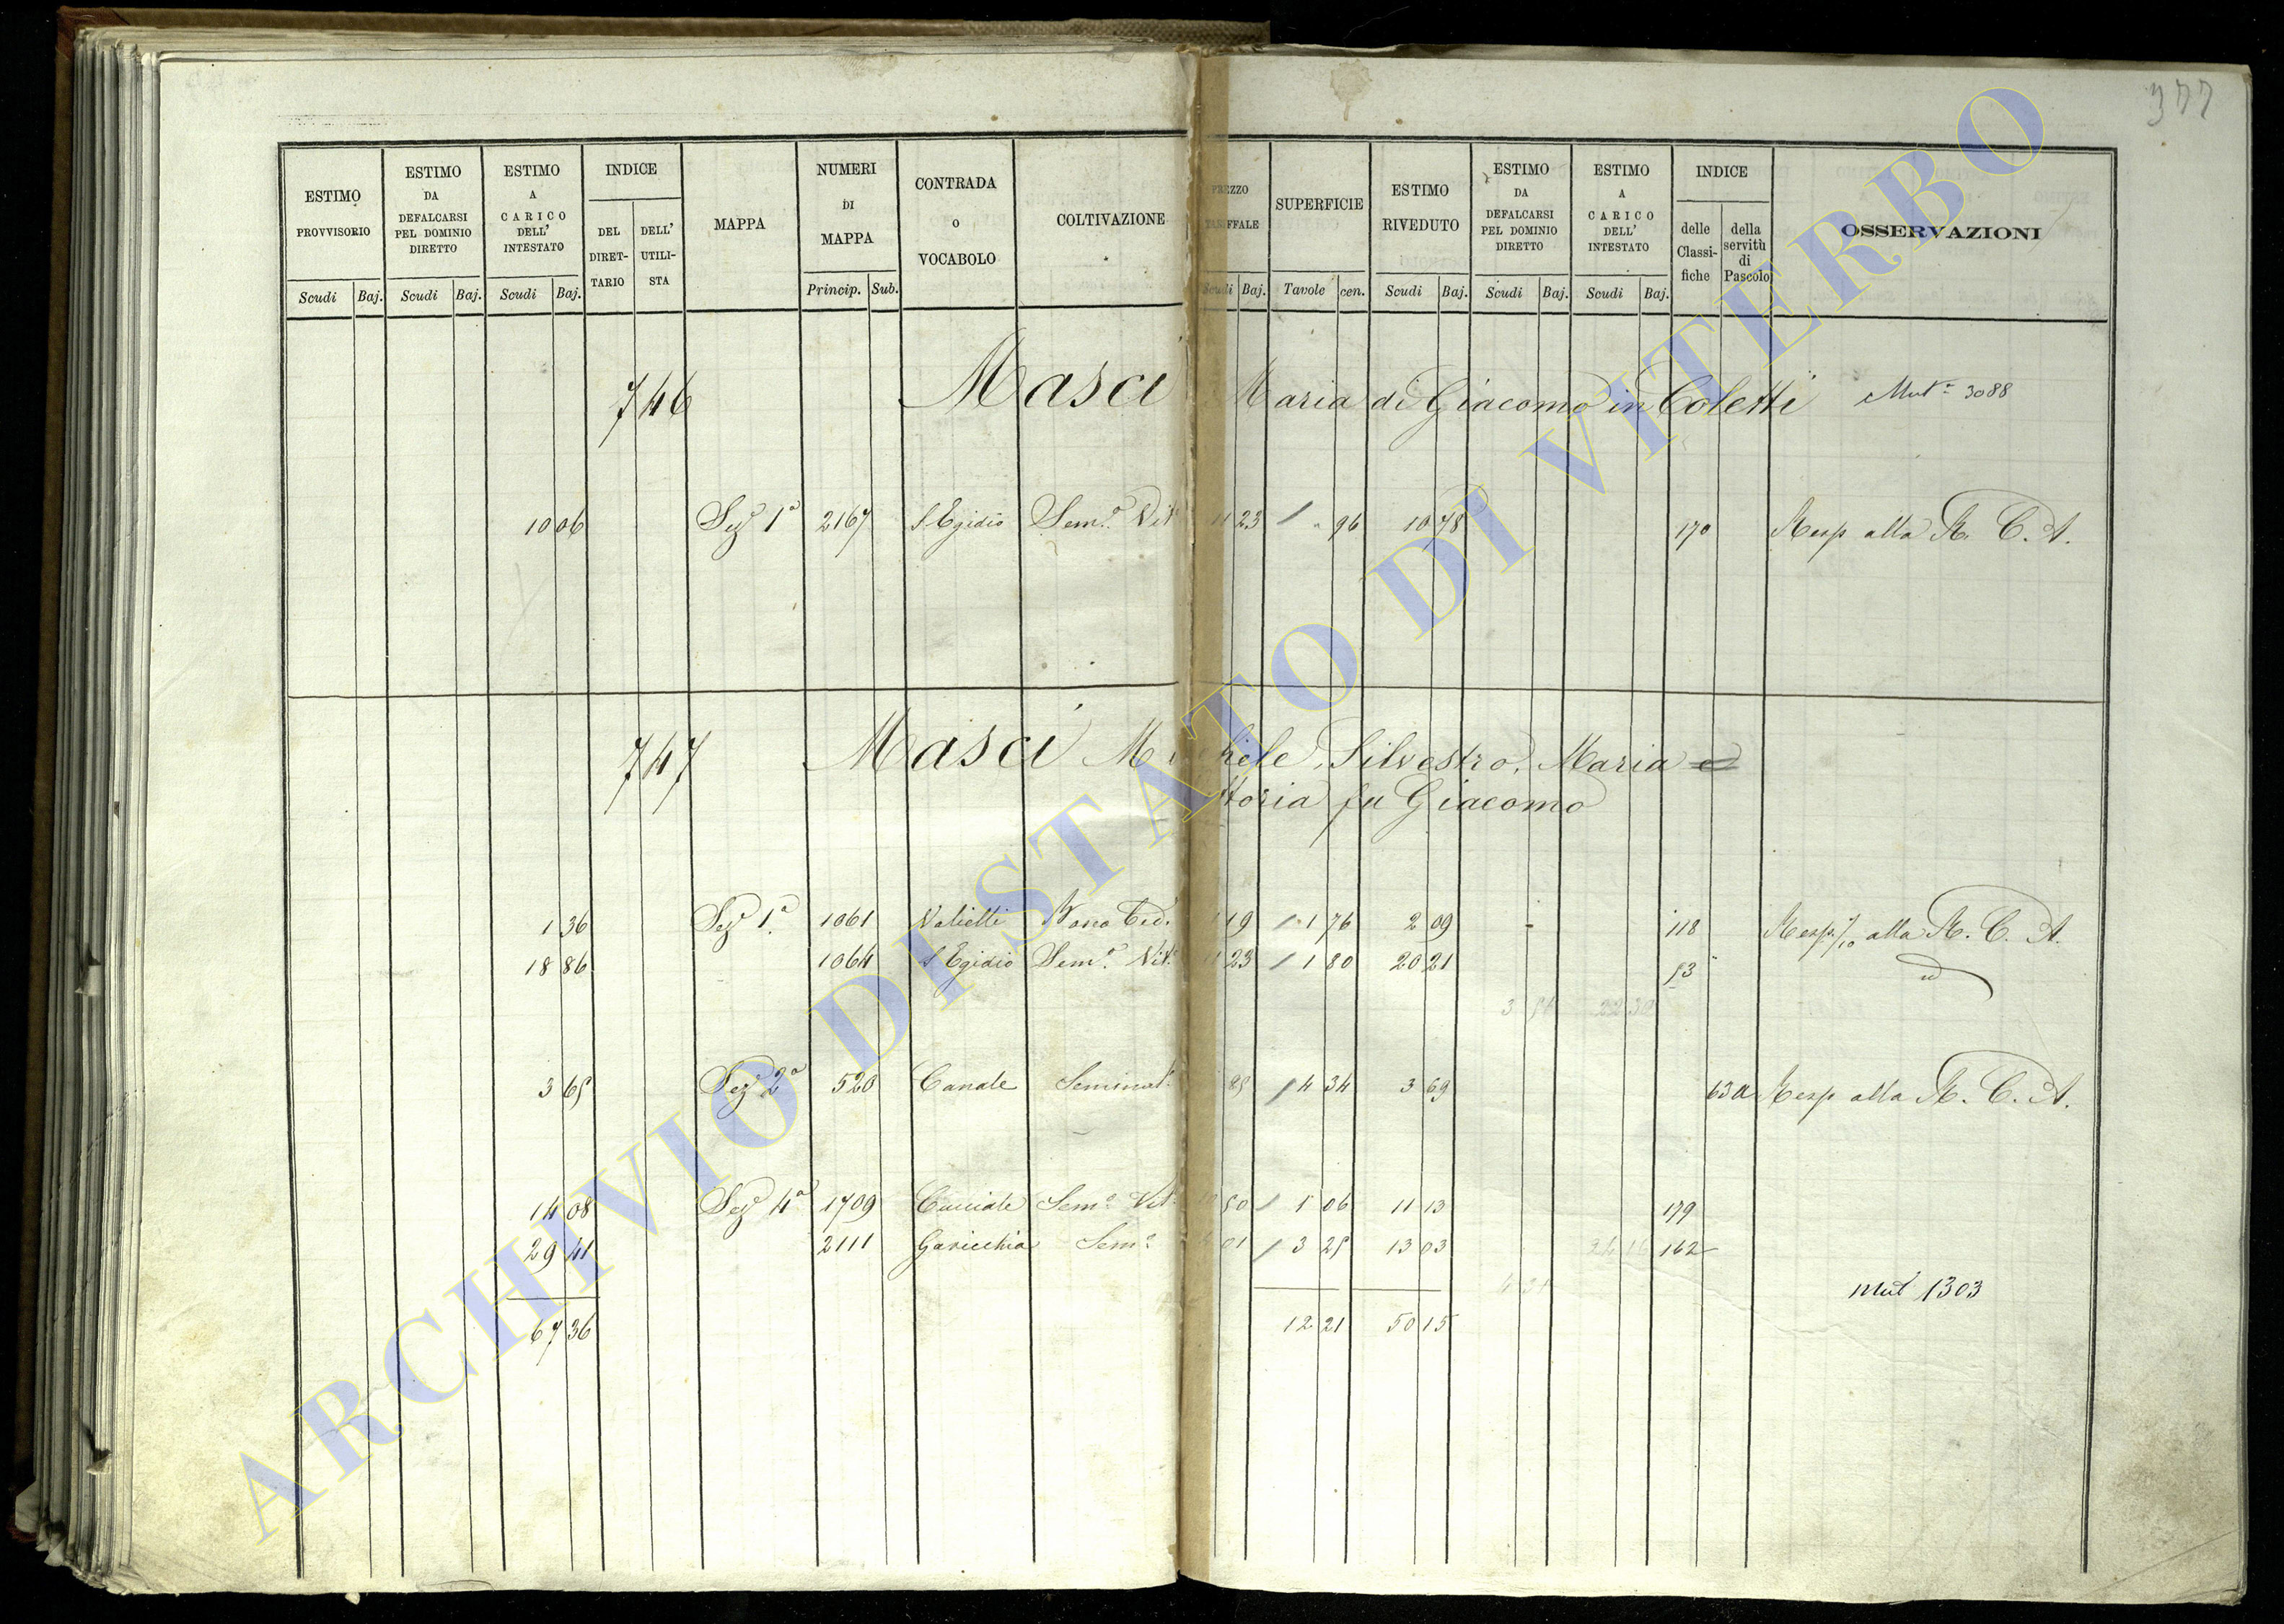 377
ESTIMO PROVVISORIO Scudi Baj.
ESTIMO DA DEFALCARSI PEL DOMINIO DIRETTO Scudi Baj.
ESTIMO A CARICO DELL' INTESTATO Scudi Baj.
INDICE DEL DIRET-TARIO DELL' UTILI-STA
MAPPA
NUMERI DI MAPPA Princip. Sub.
CONTRADA o VOCABOLO
COLTIVAZIONE
SUPERFICIE Tavole cen.
ESTIMO RIVEDUTO Scudi Baj.
ESTIMO DA DEFALCARSI PEL DOMINIO DIRETTO Scudi Baj.
ESTIMO A CARICO DELL' INTESTATO Scudi Baj.
INDICE delle Classi-fiche della servitù di Pascolo
OSSERVAZIONI
746 Masci Maria di Giacomo in Coletti Mut.ª 3088
10 06 Sez 1ª 2167 S Egidio Sem.º Vit 23 96 10 78 170 Resp alla R. C. A.
747 Masci Michele, Silvestro, Maria e
ttoria fu Giacomo
1 36 Sez 1ª 1061 19 1 76 2 09 118 Resp 7/10 alla R. C. A.
18 86 1064 S Egidio Sem.º Vit. 23 1 80 20 21 53 id
22 30
3 65 Sez 2ª 520 Canale Seminat. 85 4 34 3 69 630 Resp alla R. C. A.
14 08 Sez 4ª 1709 Cucciale Sem.º Vit. 50 1 06 11 13 179
29 41 2111 Gavicchia Sem.º 01 3 25 13 03 162
mut 1303
67 36 12 21 50 15
ARCHIVIO DI STATO DI VITERBO